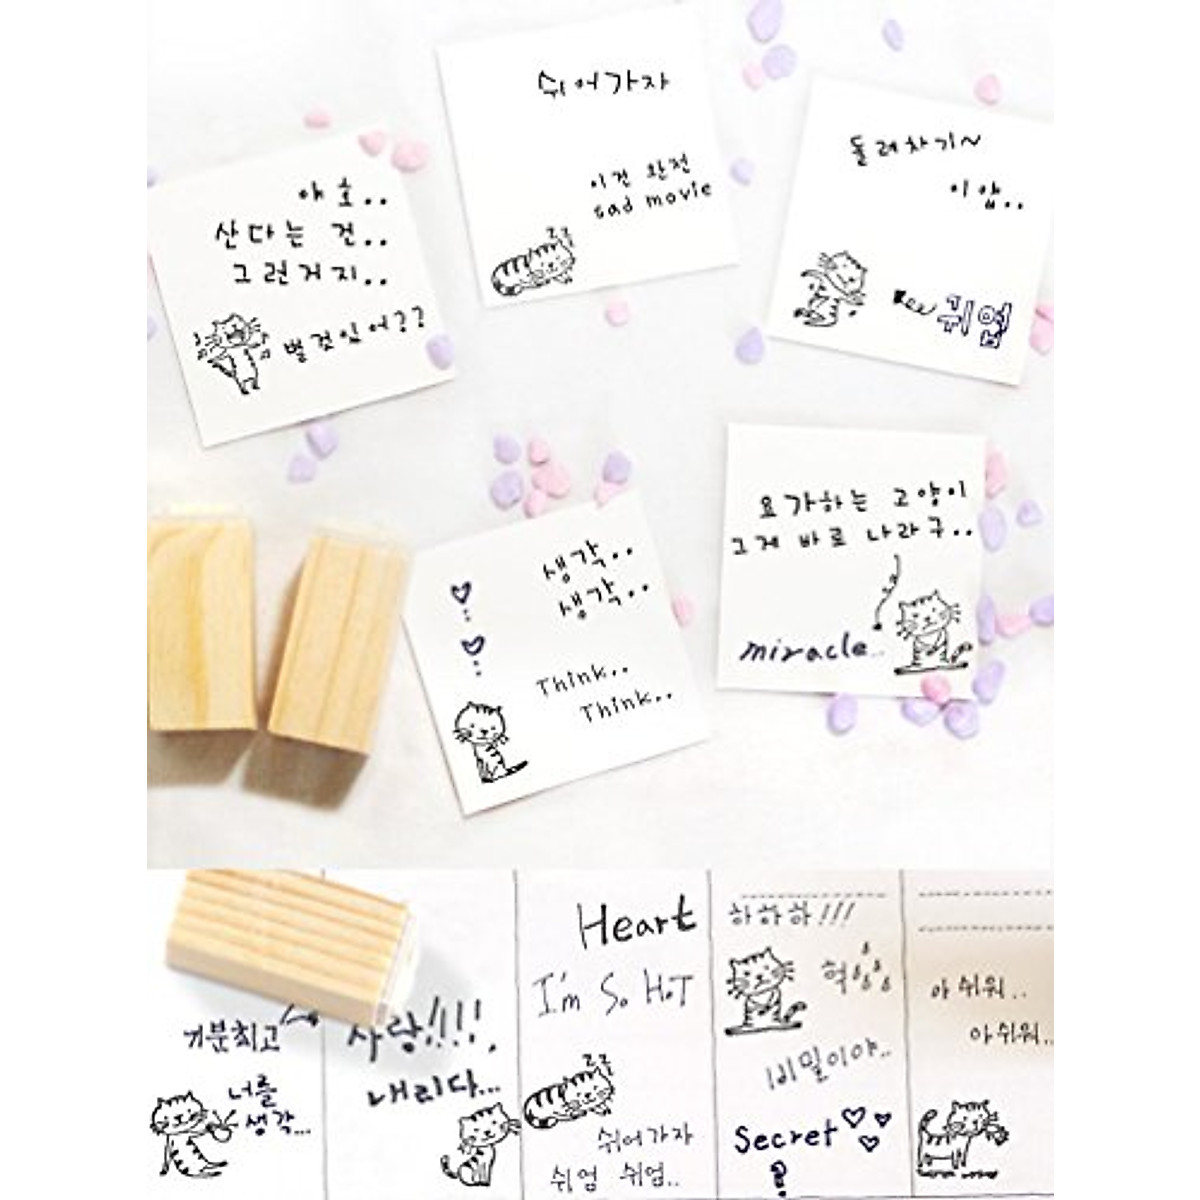 쉬어가자
이건 완전
sad movie
zzz
야호..
산다는 건..
그런거지..
별것있어??
돌려차기~
이얍..
귀엽
생각..
생각..
Think..
Think..
요가하는 고양이
그게 바로 나라구..
miracle..
기분최고
너를
생각...
사랑!!!!.
내리다...
Heart
I'm So HoT
zzz
쉬어가자
쉬엄 쉬엄..
하하하!!!
헉
비밀이야..
Secret
?
아 쉬워..
아쉬워..